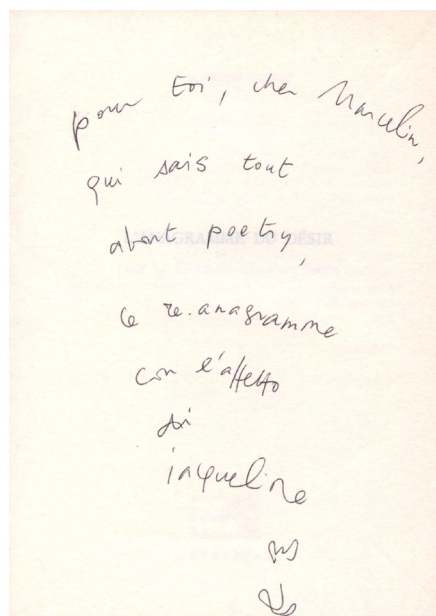 pour toi, cher Marcelin,
qui sais tout
about poetry,
L'ANAGRAMME DU DÉSIR
ce re.anagramme
con l'affetto
di
jacqueline